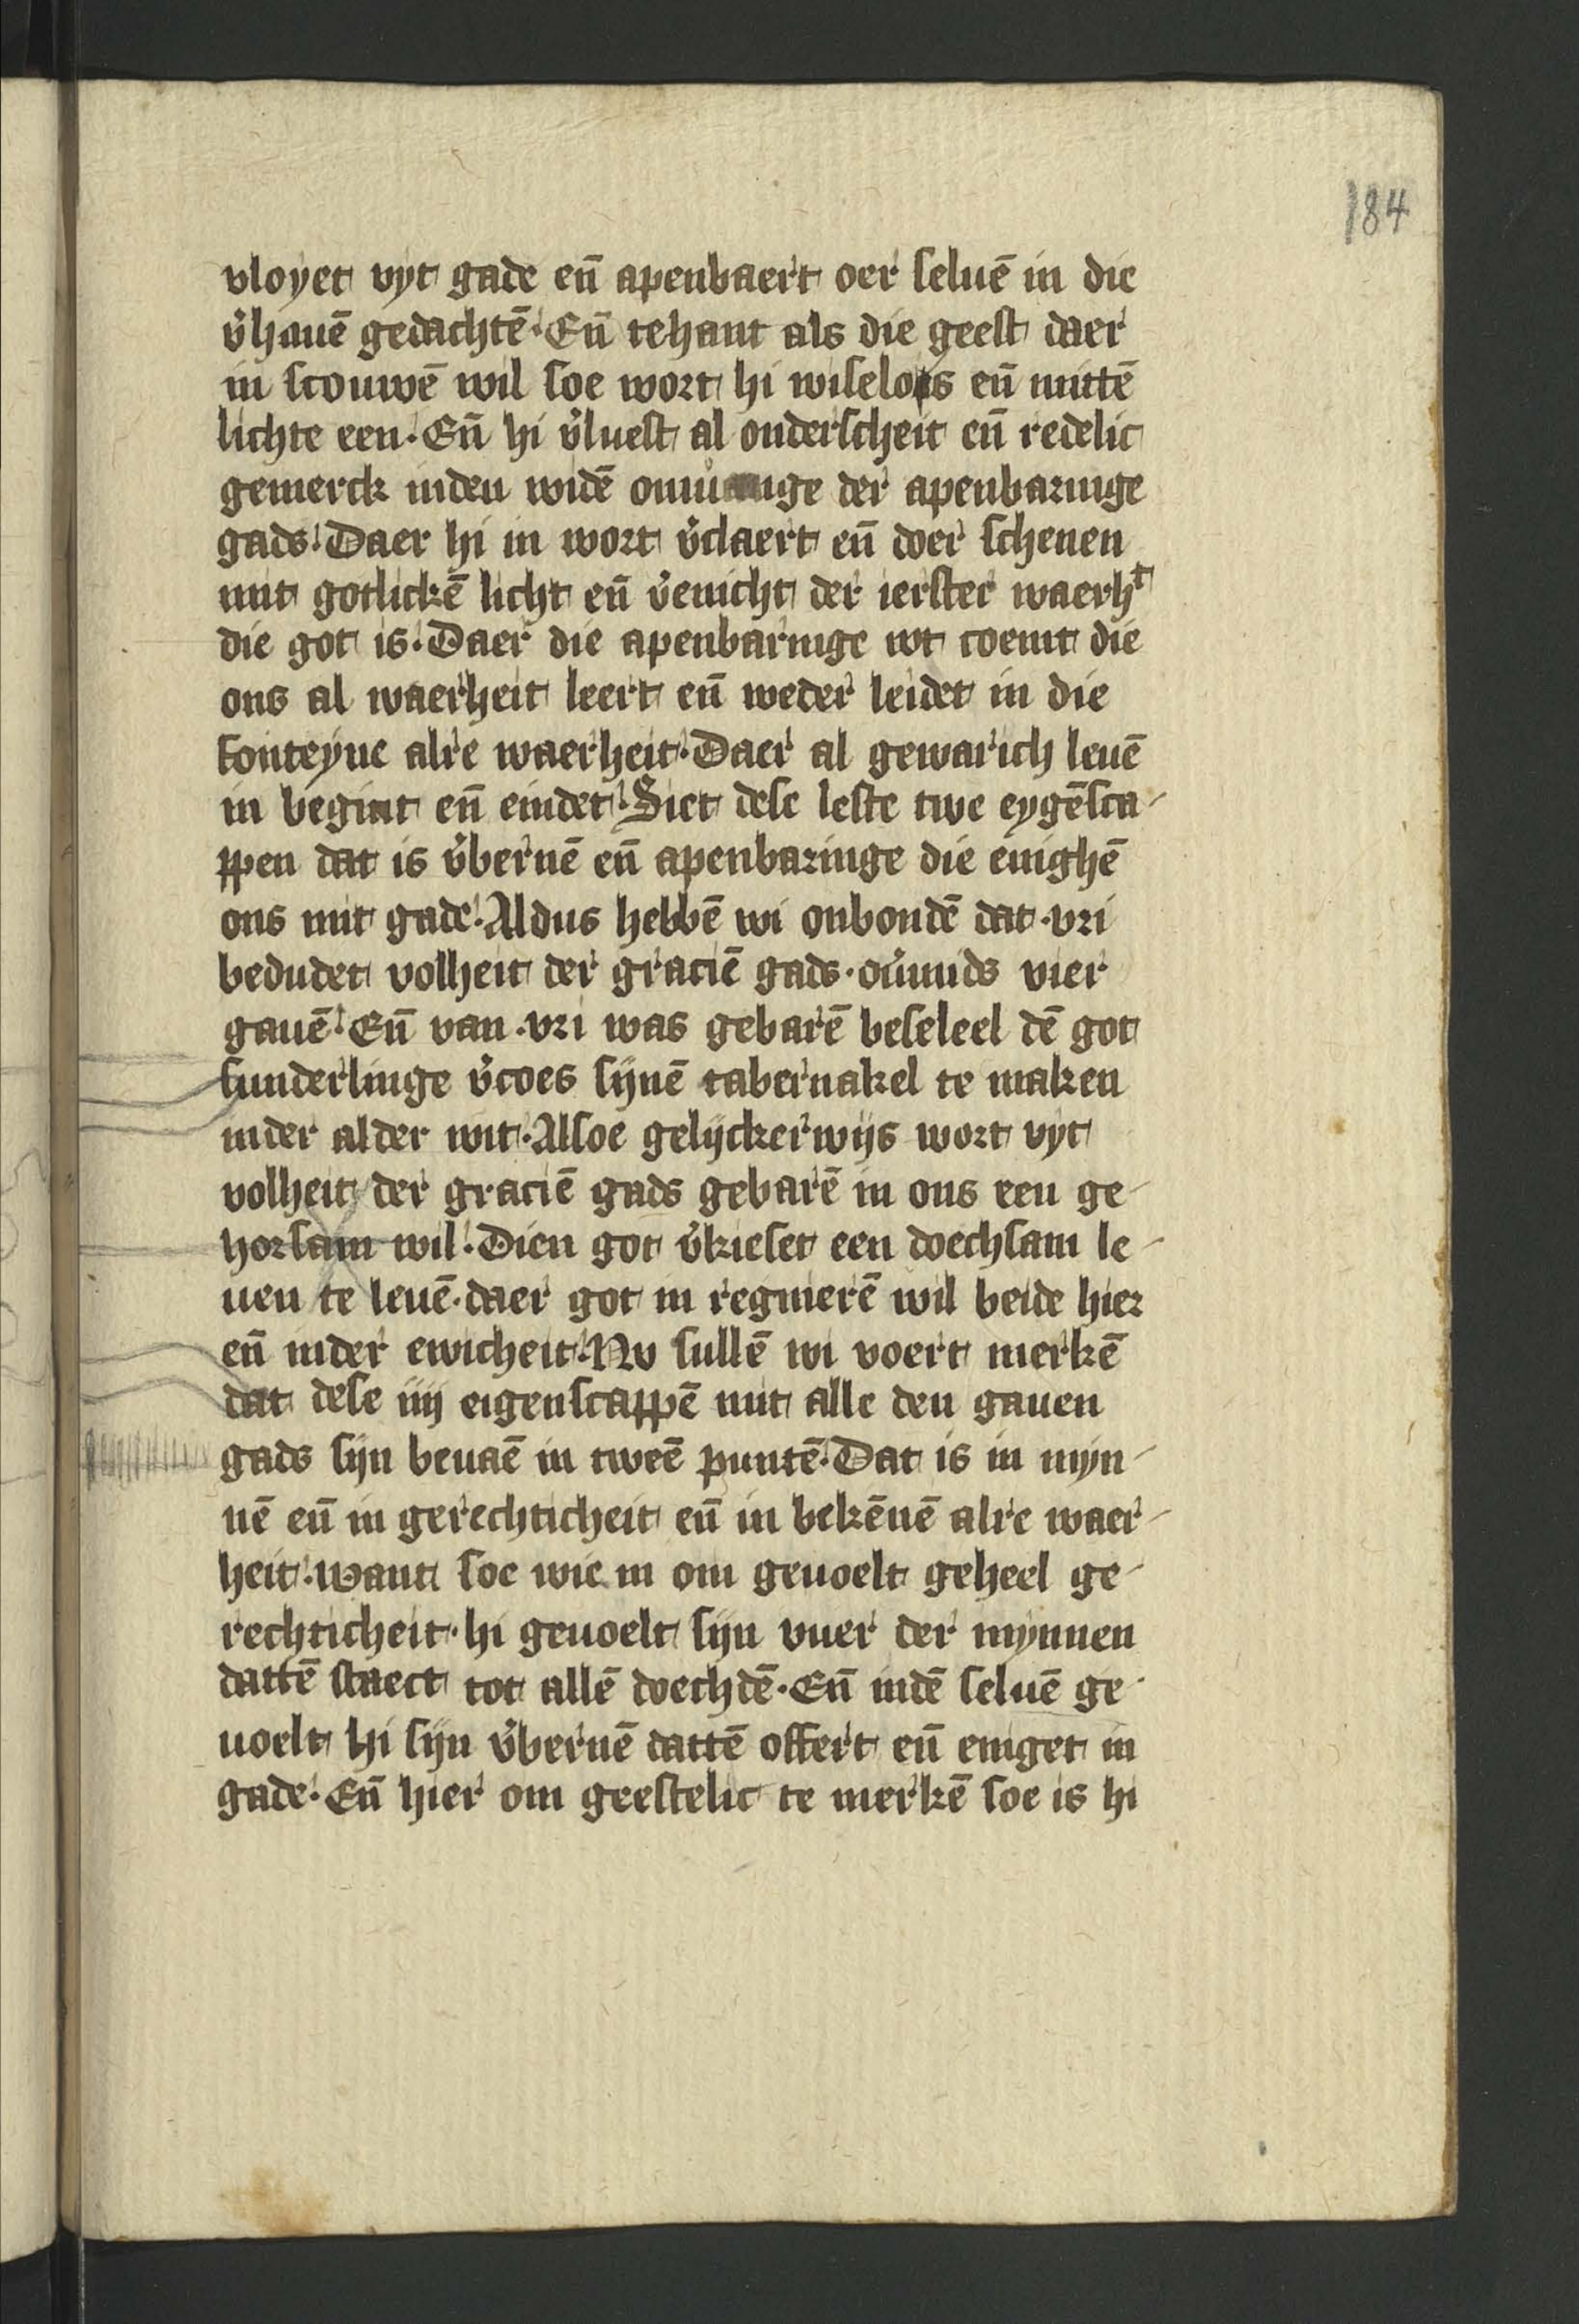 184
vloyet vyt gade en̄ apenbaert oer seluē in die
v̓hauē gedachtē. En̄ tehant als die geest daer
in scouwē wil soe wort hi wiselois en̄ mittē
lichte een. En̄ hi v̓luest al onderscheit en̄ redelic
gemerck inden widē der apenbaringe
gads. Daer hi in wort v̓claert en̄ doer schenen
mit gotlickē licht en̄ v̓enicht der ierster waerhᵗ
die got is. Daer die apenbaringe wt coemt die
ons al waerheit leert en̄ weder leidet in die
fonteyne alre waerheit. Daer al gewarich leuē
in begint en̄ eindet. Siet dese leste twe eygēsca-
ppen dat is v̓bernē en̄ apenbaringe die enighē
ons mit gade. Aldus hebbē wi onbondē dat .vri
bedudet volheit der graciē gads. ou̓mids vier
gauē. En̄ van .vri was gebarē beseleel dē got
sunderlinge v̓coes sijnē tabernakel te maken
inder alder wit. Alsoe gelijckerwijs wort vyt
volheit der graciē gads gebarē in ons een ge-
horsam wil. Dien got v̓kieset een doechsam le-
uen te leuē. daer got in regnierē wil beide hier
en̄ inder ewicheit. Nv sullē wi voert merkē
dat dese iiij eigenscappē mit alle den gauen
gads sijn beuaē in tweē puntē. Dat is in myn-
nē en̄ in gerechticheit en̄ in bekēnē alre waer-
heit. want soe wie in om geuoelt geheel ge-
rechticheit. hi geuoelt sijn vuer der mynnen
dattē staect tot allē doechdē. En̄ indē seluē ge-
uoelt hi sijn v̓bernē dattē offert en̄ eniget in
gade. En̄ hier om geestelic te merkē soe is hi